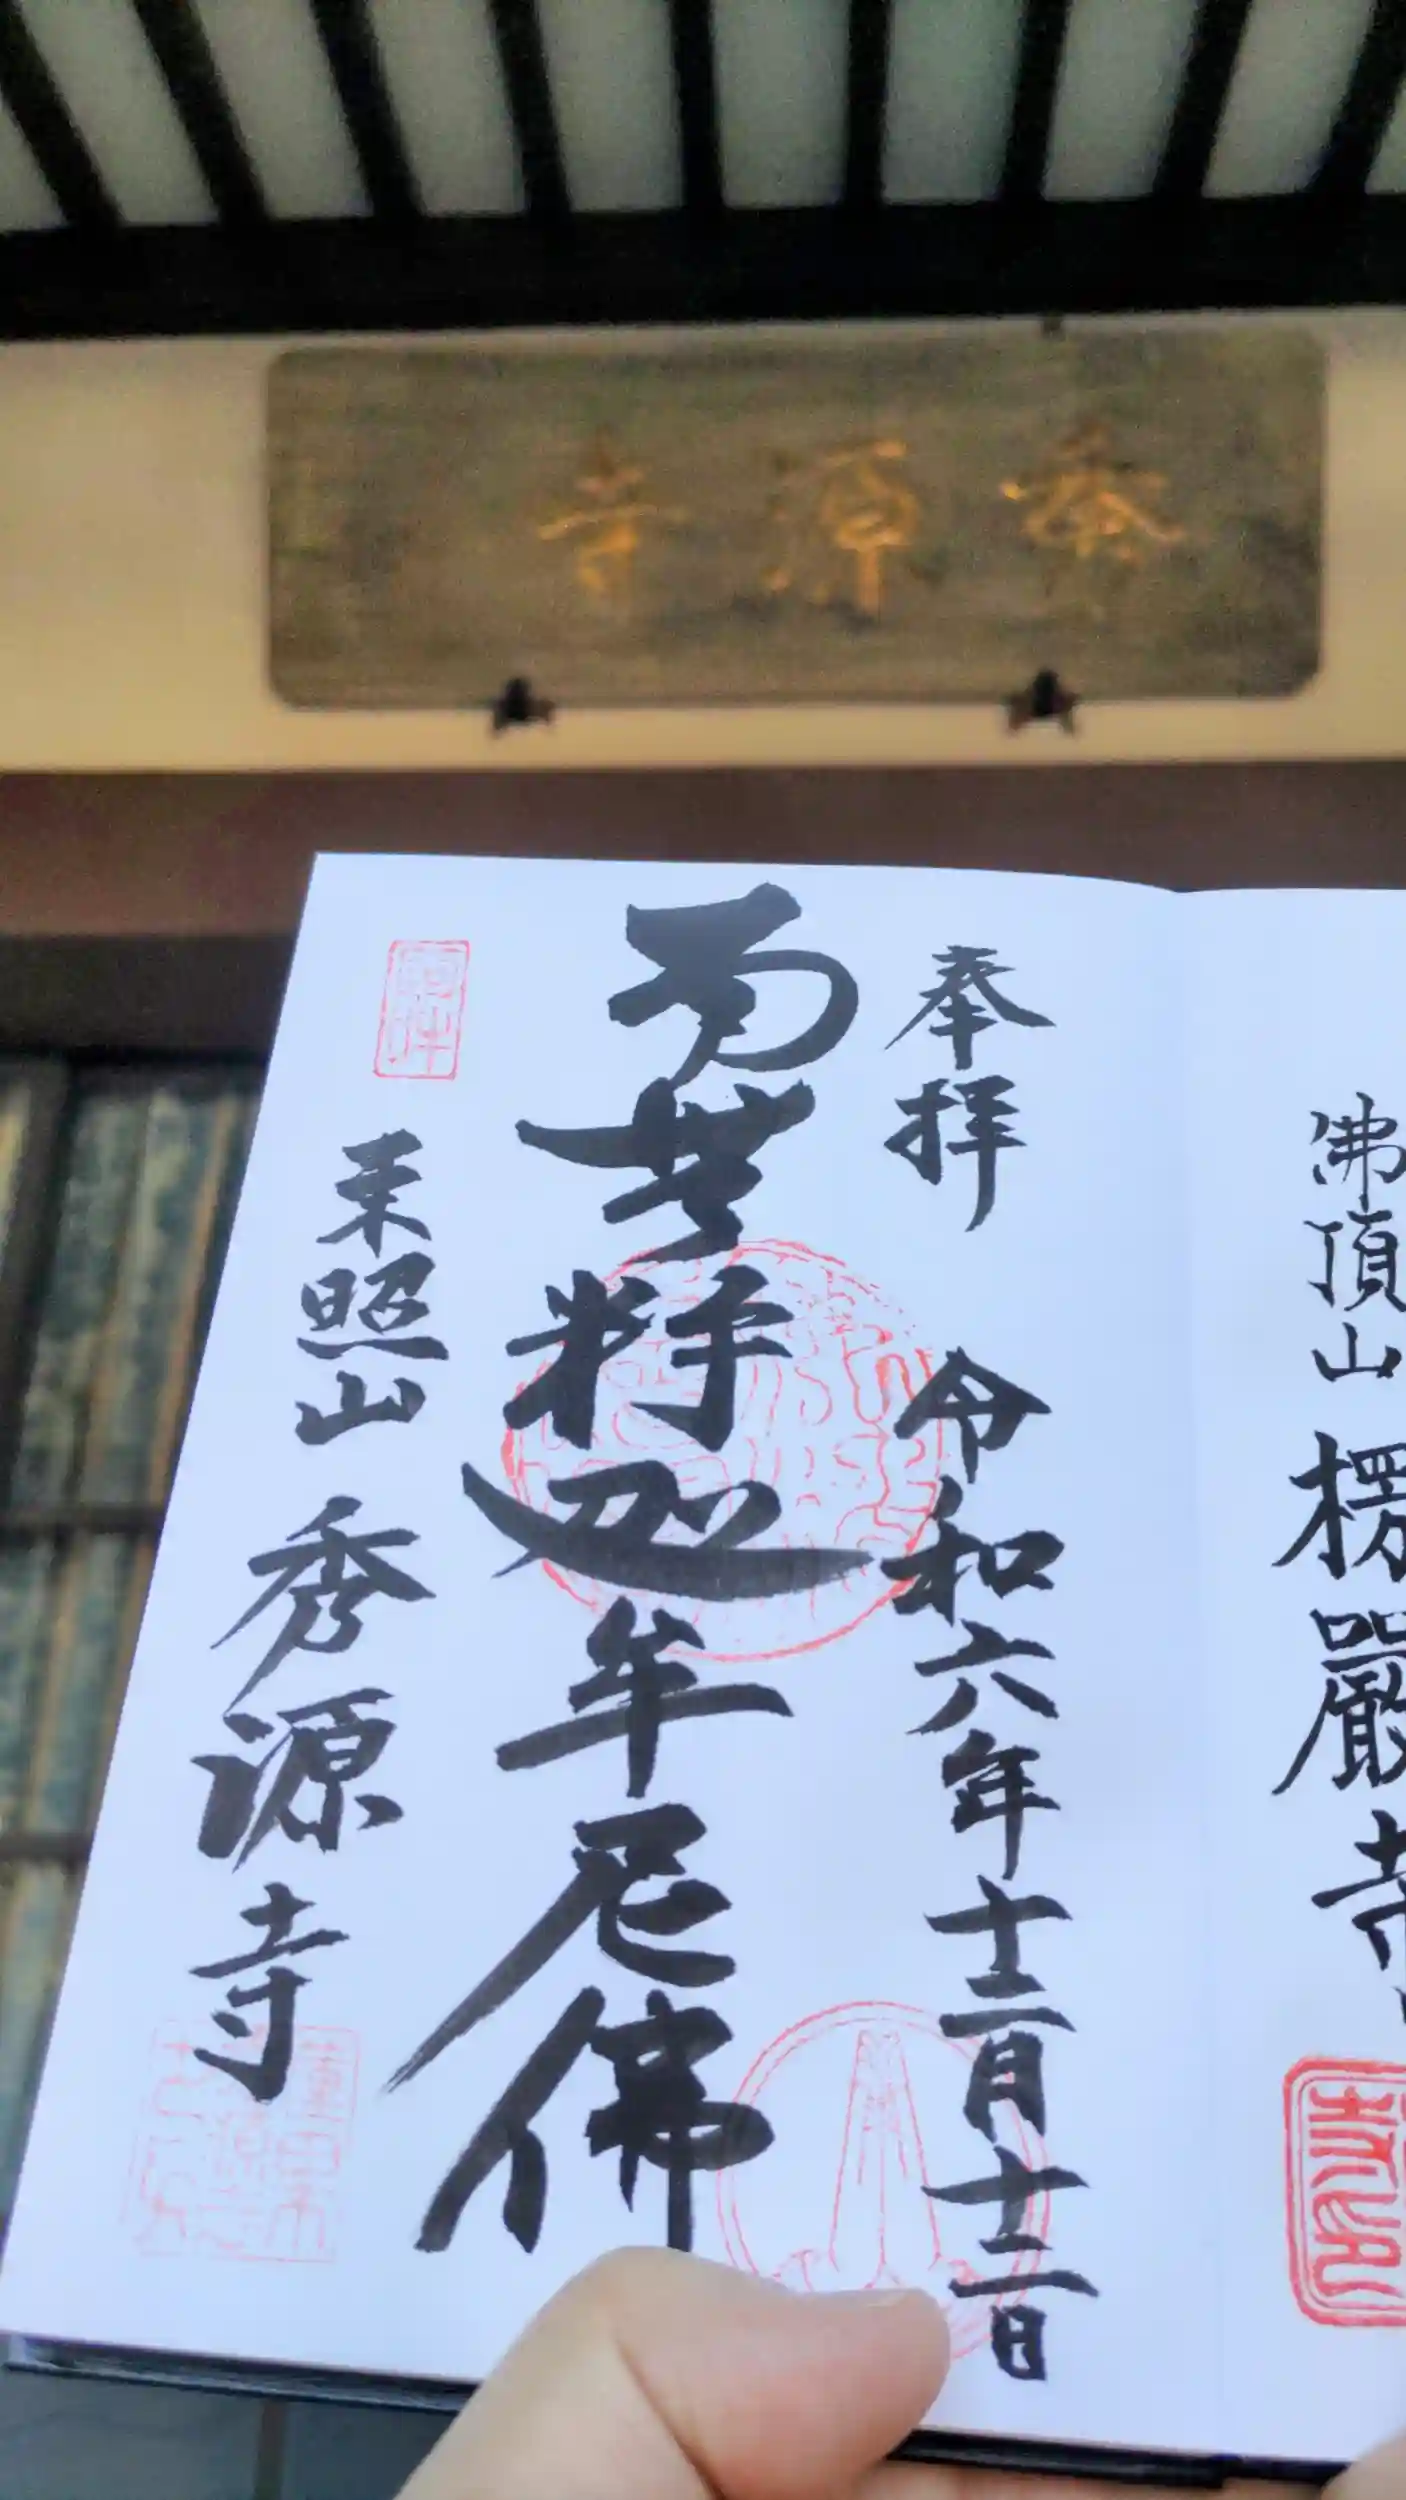 秀源寺
奉拝 令和六年十二月十二日
南無釈迦牟尼佛
東照山 秀源寺
佛頂山 楞嚴寺